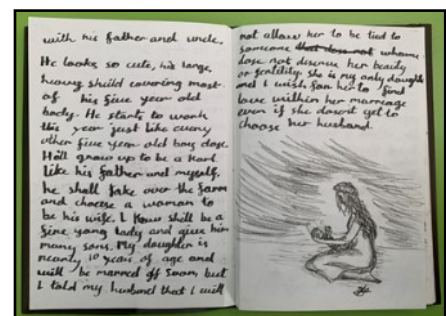 with his father and uncle.
He looks so cute, his large,
heavy sheild covering most
of his five year old
body. He starts to work
this year just like every
other five year old boy dose.
He'll grow up to be a Karl
like his father and myself.
he shall take over the farm
and choose a woman to
be his wife. I know she'll be a
fine yong lady and give him
many sons. My daughter is
nearly 10 years of age and
will be married off soon, but
I told my husband that I will
not allow her to be tied to
someone that dose not whome
dose not diserve her beauty
or fertility. She is my only daughter
and I wish for her to find
love within her marriage
even if she dosent get to
choose her husband.